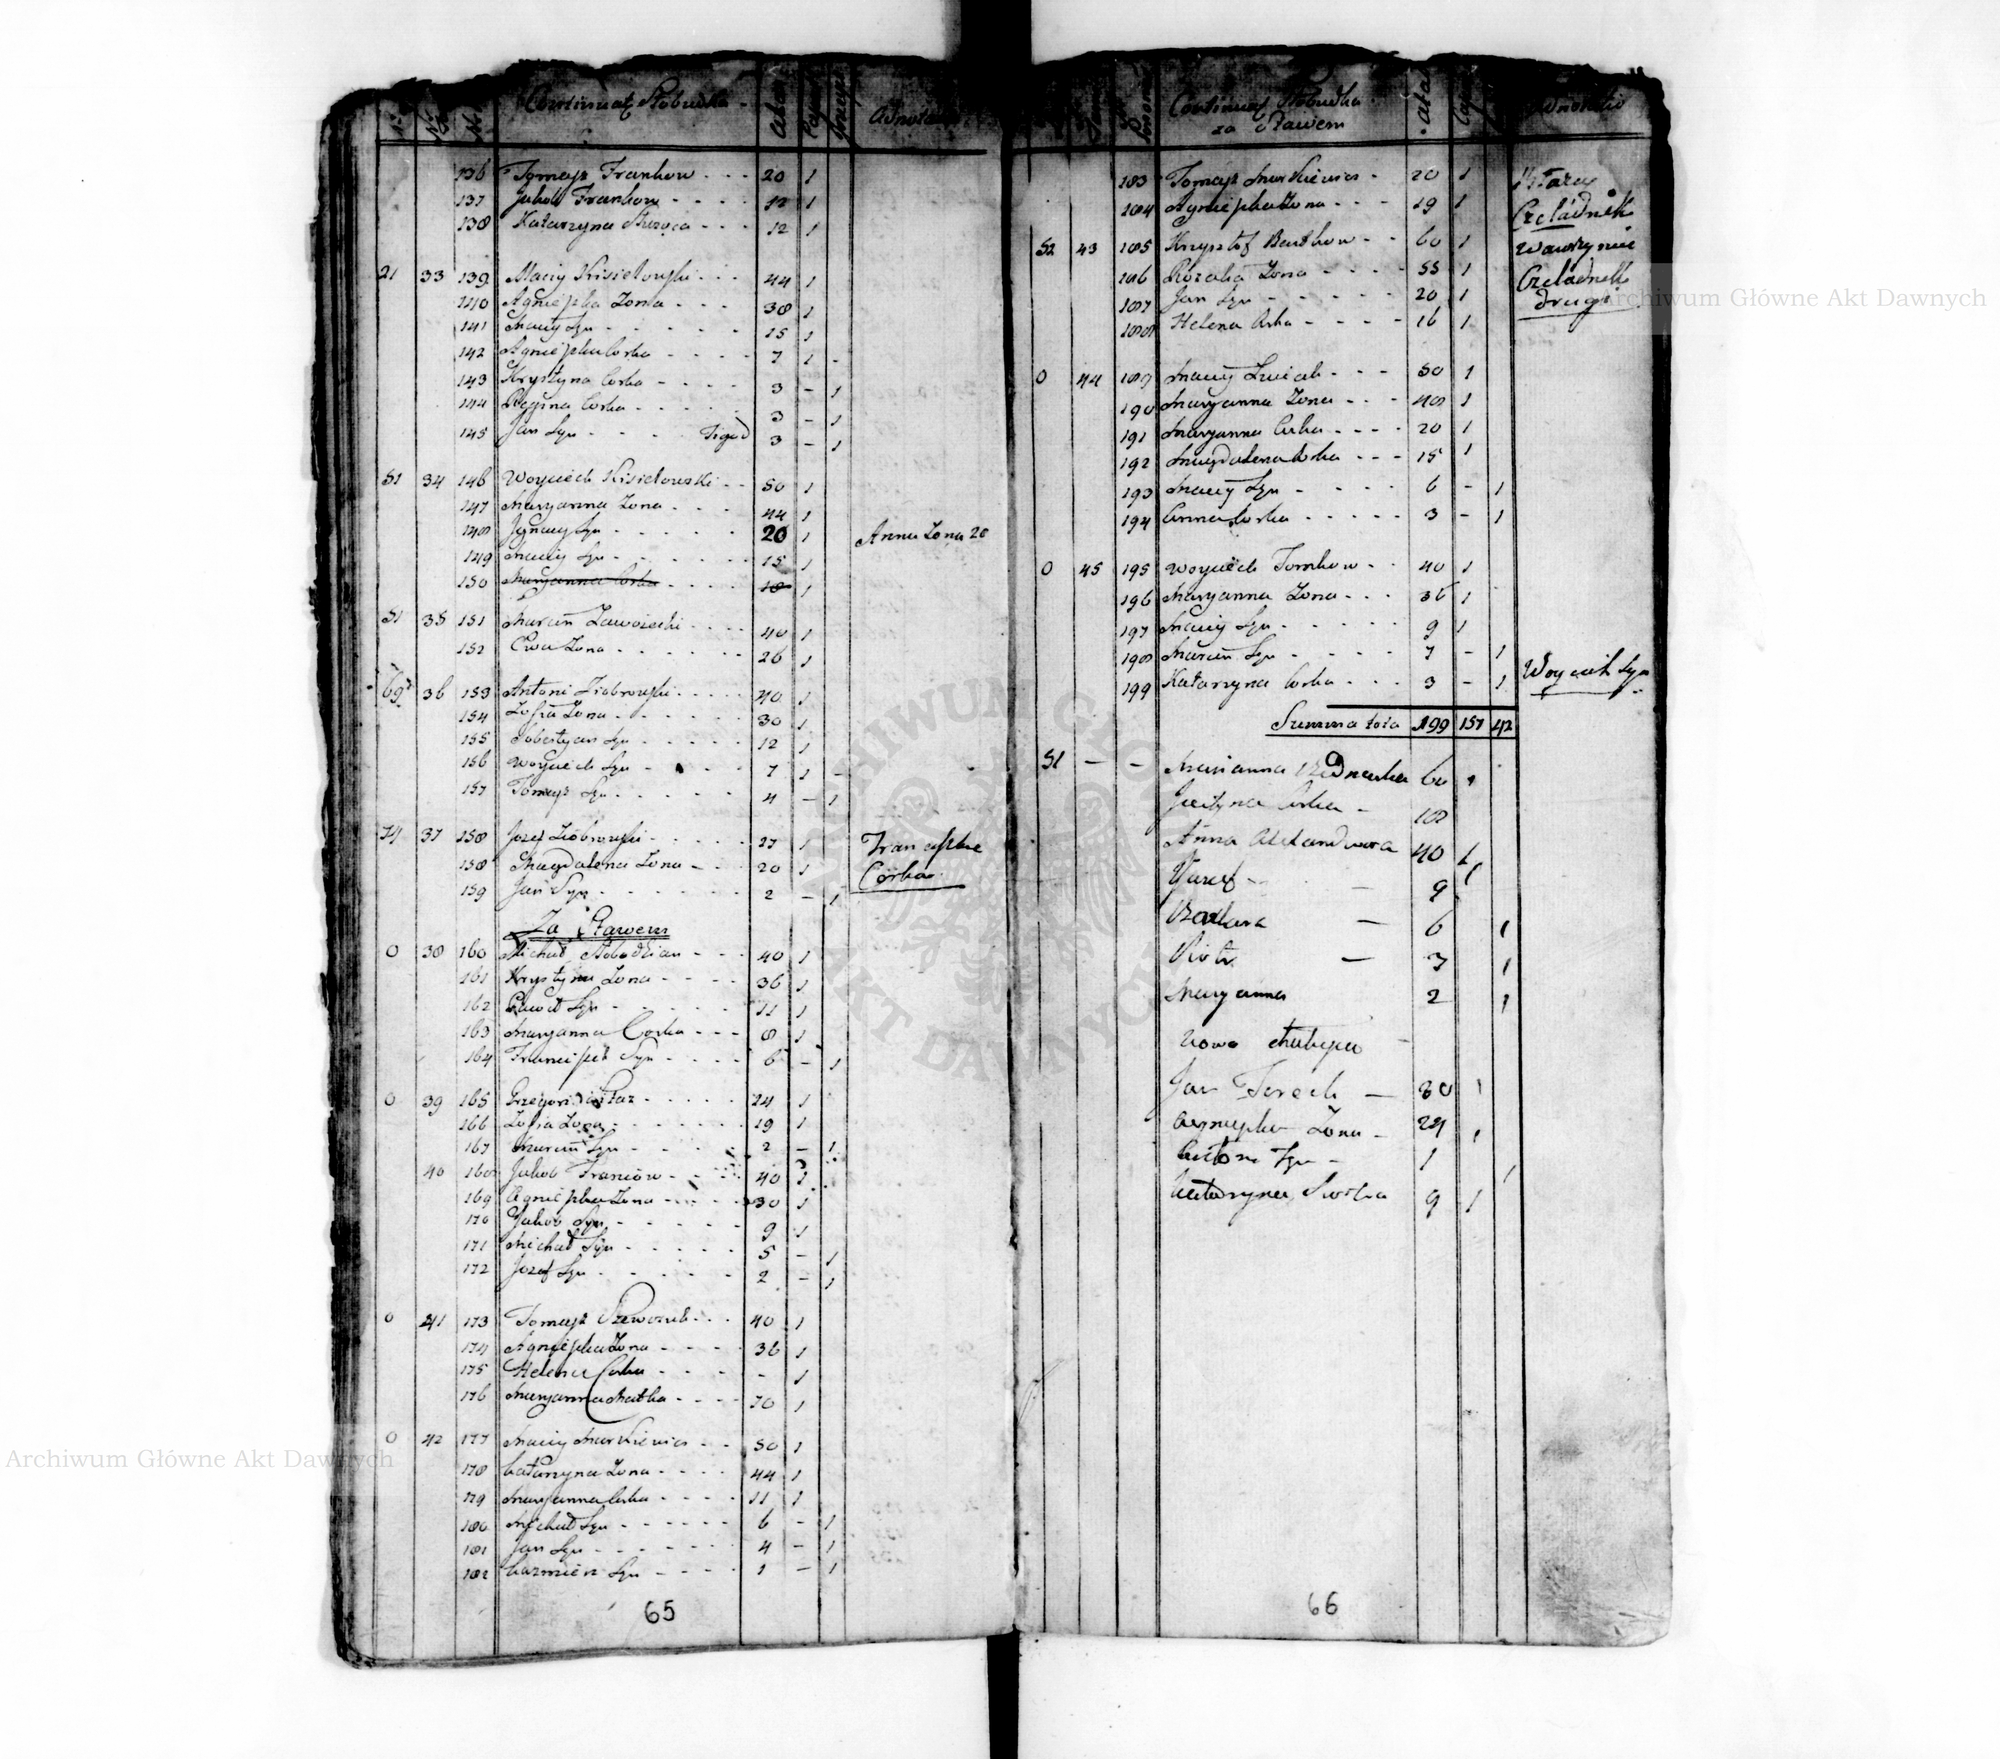 Continuat Słobudka
136 Tomasz Frankow - - - 20 1
137 Jakob Frankow - - - - 12 1
138 Katarzyna - - - 12 1
21 33 139 Maciy Kisielowski - - - 44 1
140 Agnieszka Zona - - - 38 1
141 Maciy Syn - - - - - 15 1
142 Agnieszka Corka - - - - 7 1 -
143 Krystyna Corka - - - - 3 - 1
144 Regina Corka - - - - - 3 - 1
145 Jan Syn - - - - 3 - 1
51 34 146 Woyciech Kisielowski - - 50 1
147 Maryanna Zona - - - 44 1
148 Jgnacy Syn - - - - - 20 1 Anna Zona 20
149 Maciy Syn - - - - - - 15 1
150 Maryanna Corka - - - - 18 1
51 35 151 Marcin - - - - 40 1
152 Ewa Zona - - - - - - 26 1
69 36 153 Antoni - - - - 40 1
154 Zofia Zona - - - - - - 30 1
155 Sobestyan Syn - - - - - 12 1
156 Woyciech Syn - - - 7 1 -
157 Tomasz Syn - - - - - 4 - 1
74 37 158 Jozef - - - - - 27 1 Franciszka
158 Magdalena Zona - - 20 1 Córka
159 Jan Syn - - - - - - 2 - 1
Za Stawem
0 38 160 Michał Słobodzian - - - 40 1
161 Krystyna Zona - - - - 36 1
162 Paweł Syn - - - - - 11 1
163 Maryanna Corka - - - 8 1
164 Franciszek Syn - - - - 6 - 1
0 39 165 Grzegorz - - - - - 24 1
166 Zofia Zona - - - - - - 19 1
167 Marcin Syn - - - - - 2 - 1
40 168 Jakob Franiow - - 40 1
169 Agnieszka Zona - - - - 30 1
170 Jakob Syn - - - - - 9 1
171 Michał Syn - - - - - 5 - 1
172 Jozef Syn - - - - - - 2 - 1
0 41 173 Tomasz Szewczuk - - - 40 1
174 Agnieszka Zona - - - - 36 1
175 Helena Corka - - - - - 1
176 Maryanna Matka - - - - 70 1
0 42 177 Maciy Markiewicz - - 50 1
178 Catarzyna Zona - - - - 44 1
179 Maryanna Corka - - - - 11 1
180 Michał Syn - - - - - - 6 - 1
181 Jan Syn - - - - - - - 4 - 1
182 Cazmierz Syn - - - - 1 - 1
65
Continuat Słobudka
za Stawem
183 Tomasz Markiewicz - 20 1
184 Agnieszka Zona - - - 19 1 Czeladnik
52 43 185 Krzysztof - - 60 1 Wawrzyniec
186 Rozalia Zona - - - - 55 1 Czeladnik
187 Jan Syn - - - - - - 20 1 drugi
188 Helena Corka - - - - 16 1
0 44 189 Maciy - - - 50 1
190 Maryanna Zona - - - 48 1
191 Maryanna Corka - - - - 20 1
192 Magdalena Corka - - - 15 1
193 Maciy Syn - - - - 6 - 1
194 Anna Corka - - - - - 3 - 1
0 45 195 Woyciech Tomkow - - 40 1
196 Maryanna Zona - - - 36 1
197 Maciy Syn - - - - - - 9 1
198 Marcin Syn - - - - - 7 - 1
199 Katarzyna Corka - - - 3 - 1 Woyciech Syn
Summa tota 199 157 42
51 - - Marianna 60 1
Justyna Corka - 18
Anna 40 1
Jozef - - 9 1
Barbara - 6 1
Piotr - 3 1
Maryanna 2 1
Nowo
Jan - 30 1
Agnieszka Zona - 24 1
Antoni Syn - 1 1
Katarzyna Siostra 9 1
66
Archiwum Główne Akt Dawnych
Archiwum Główne Akt Dawnych
ARCHIWUM GŁÓWNE AKT DAWNYCH